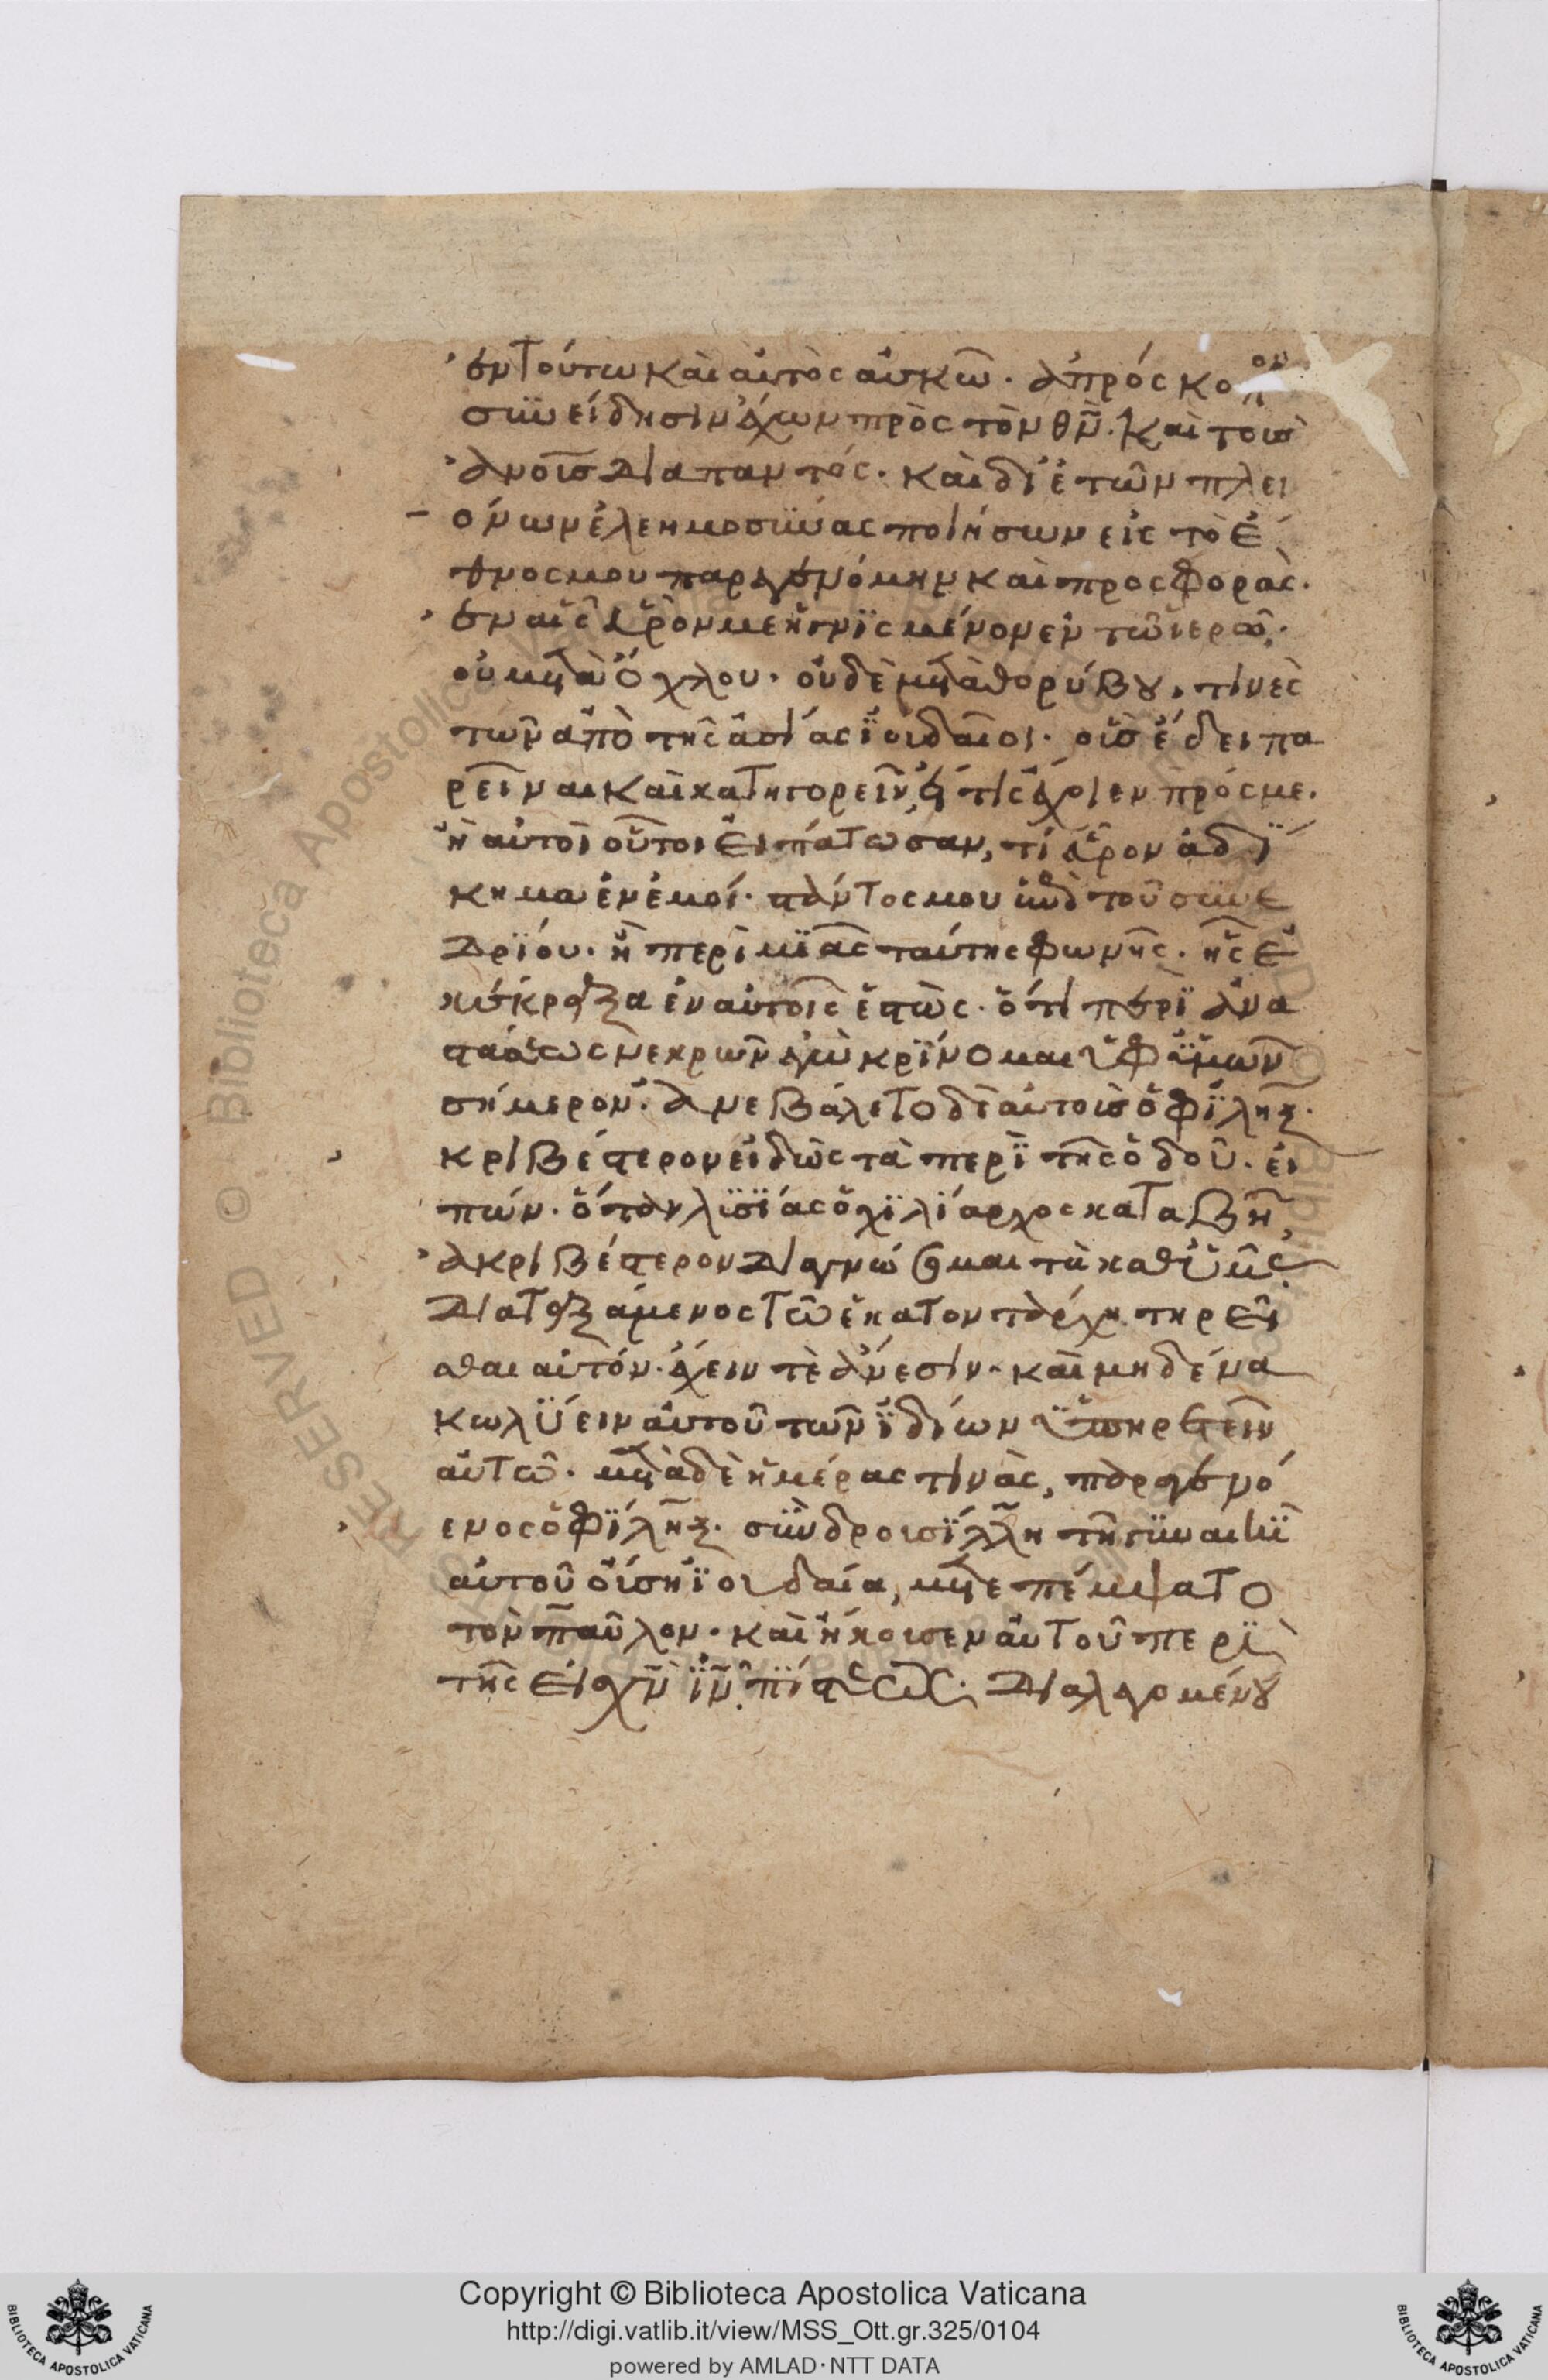 ἐν τούτω καὶ αὐτὸς ἀσκῶ. ἀπρόσκοπον
συνείδησιν ἔχων πρὸς τὸν θν̄. καὶ τοὺς
ἀνοῖς διαπαντός. καὶ δι' ἐτῶν πλει
όνων ἐλεημοσύνας ποιήσων εἰς τὸ ἔ
θνος μου παρεγενόμην καὶ προσφορὰς.
ἐν αἷς εὗρόν με ἡγνισμένον ἐν τῶ ἱερῶ.
οὐ μετὰ ὄχλου. οὐδὲ μετὰ θορύβου, τινὲς
τῶν ἀπὸ τῆς ἀσίας ἰουδαῖοι. οὓς ἔδει πα
ρεῖναι καὶ κατηγορεῖν, εἴ τι ἔχοιεν πρός με.
ἢ αὐτοὶ οὗτοι εἰπάτωσαν, τί εὗρον ἀδί
κημα ἐν ἐμοί. στάντος μου ἐπὶ τοῦ συνε
δρίου. ἢ περὶ μιᾶς ταύτης φωνῆς. ἧς ἔ
κέκραξα ἐν αὐτοῖς ἑστὼς. ὅτι περὶ ἀνα
στάσεως νεκρῶν ἐγὼ κρίνομαι ὑφ' ὑμῶν
σήμερον. ἀνεβάλετο δὲ αὐτοὺς ὁ φίληξ.
κριβέστερον εἰδὼς τὰ περὶ τῆς ὁδοῦ. εἰ
πών. ὅταν λισίας ὁ χιλίαρχος καταβῆ,
ἀκριβέστερον διαγνώσομαι τὰ καθ' ὑμᾶς.
διαταξάμενος τῶ ἑκατοντάρχη τηρεῖ
σθαι αὐτόν. ἔχειν τὲ ἄνεσιν. καὶ μηδένα
κωλύειν αὐτοῦ τῶν ἰδίων ὑπηρετεῖν
αὐτῶ. μετὰ δὲ ἡμέρας τινὰς, παραγενό
ενος ὁ φίληξ. σὺν δρουσίλλη τῆ γυναικὶ
αὐτοῦ οὔση ἰουδαία, μετεπέμψατο
τὸν παῦλον. καὶ ἤκουσεν αὐτοῦ περὶ
τῆς εἰς χν̄ ἰν̄ πίστεως. διαλεγομένου
Copyright © Biblioteca Apostolica Vaticana
http://digi.vatlib.it/view/MSS_Ott.gr.325/0104
powered by AMLAD·NTT DATA